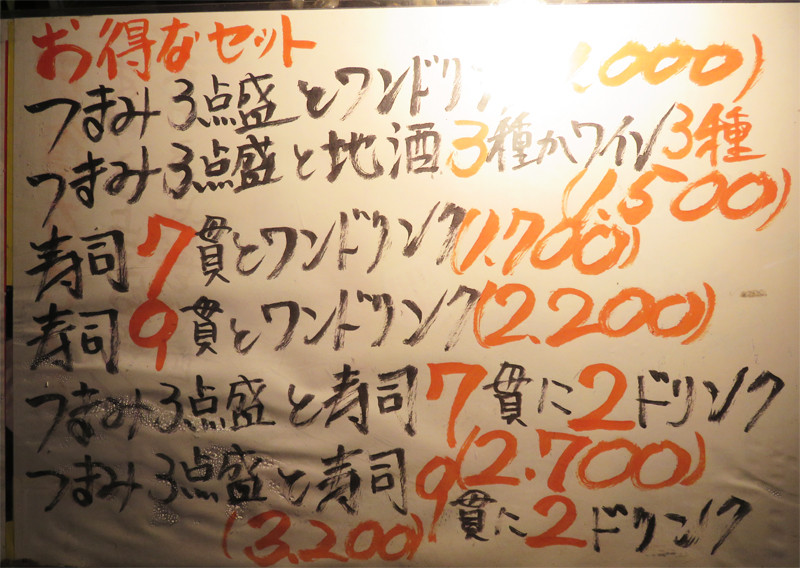 お得なセット
つまみ3点盛とワンドリンク(1.000)
つまみ3点盛と地酒3種かワイン3種
(1.500)
寿司7貫とワンドリンク(1.700)
寿司9貫とワンドリンク(2.200)
つまみ3点盛と寿司7貫に2ドリンク
(2.700)
つまみ3点盛と寿司9貫に2ドリンク
(3.200)